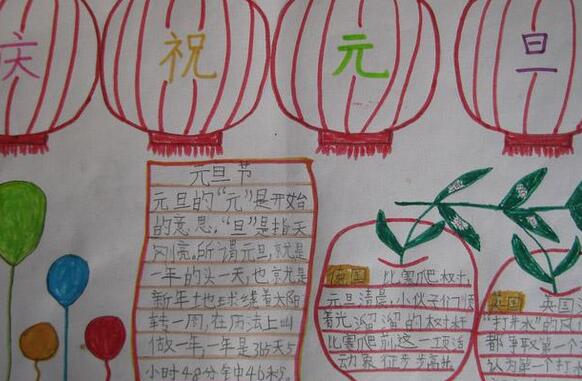 庆祝元旦
元旦节
元旦的“元”是开始
的意思，“旦”是指天
刚亮。所谓元旦，就是
一年的头一天，也就是
新年地球绕着太阳
转一周，在历法上叫
做一年，一年是365天5
小时48分钟46秒。
德国 比赛爬树，
元旦清晨，小伙子们顺
着光溜溜的树杆
比赛爬前，这一项活
动象征步步高升。
英国 英国
“打井水”的风
都争取第一个
认为第一个打水